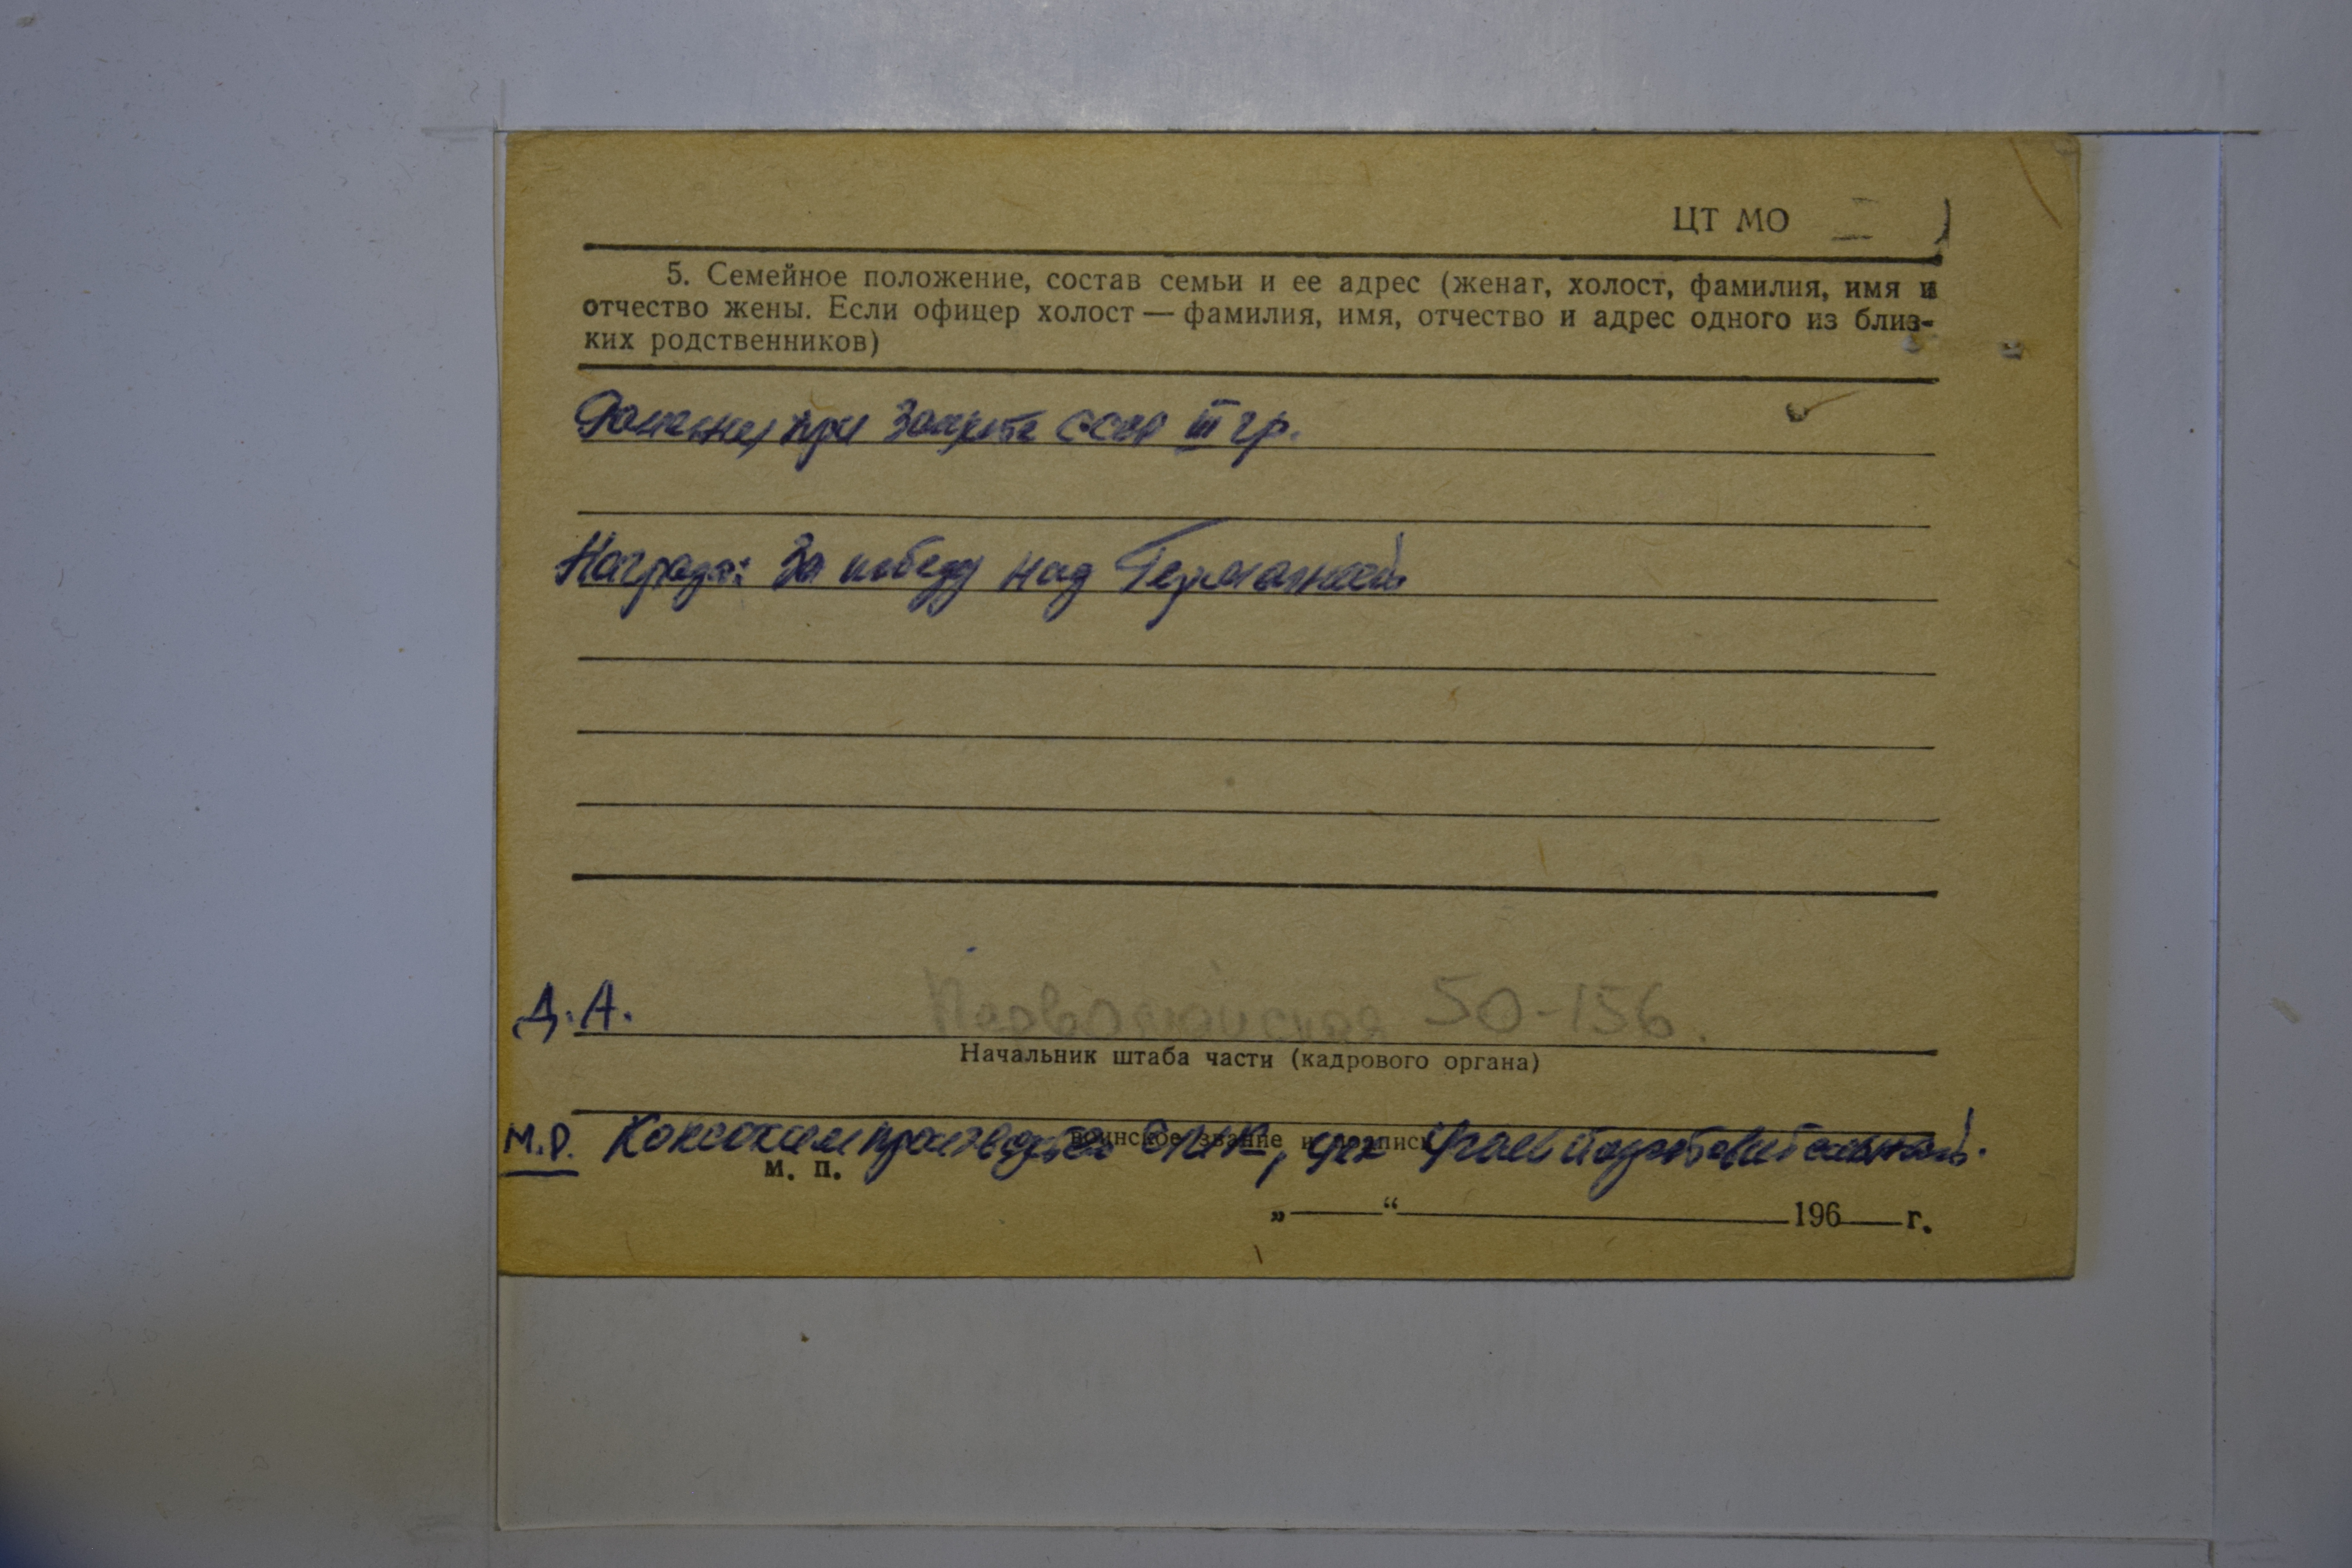 ЦТ МО
5. Семейное положение, состав семьи и ее адрес (женат, холост, фамилия, имя и
отчество жены. Если офицер холост — фамилия, имя, отчество и адрес одного из близ-
ких родственников)
при защите СССР III гр.
Награда: За победу над Германией
Д. А.
Первомайская 50-156.
Начальник штаба части (кадрового органа)
воинское звание и подпись
М.Р. Коксохимпроизводство ЕМК, цех Углеподготовительный.
М. П.
„ “ 196 г.